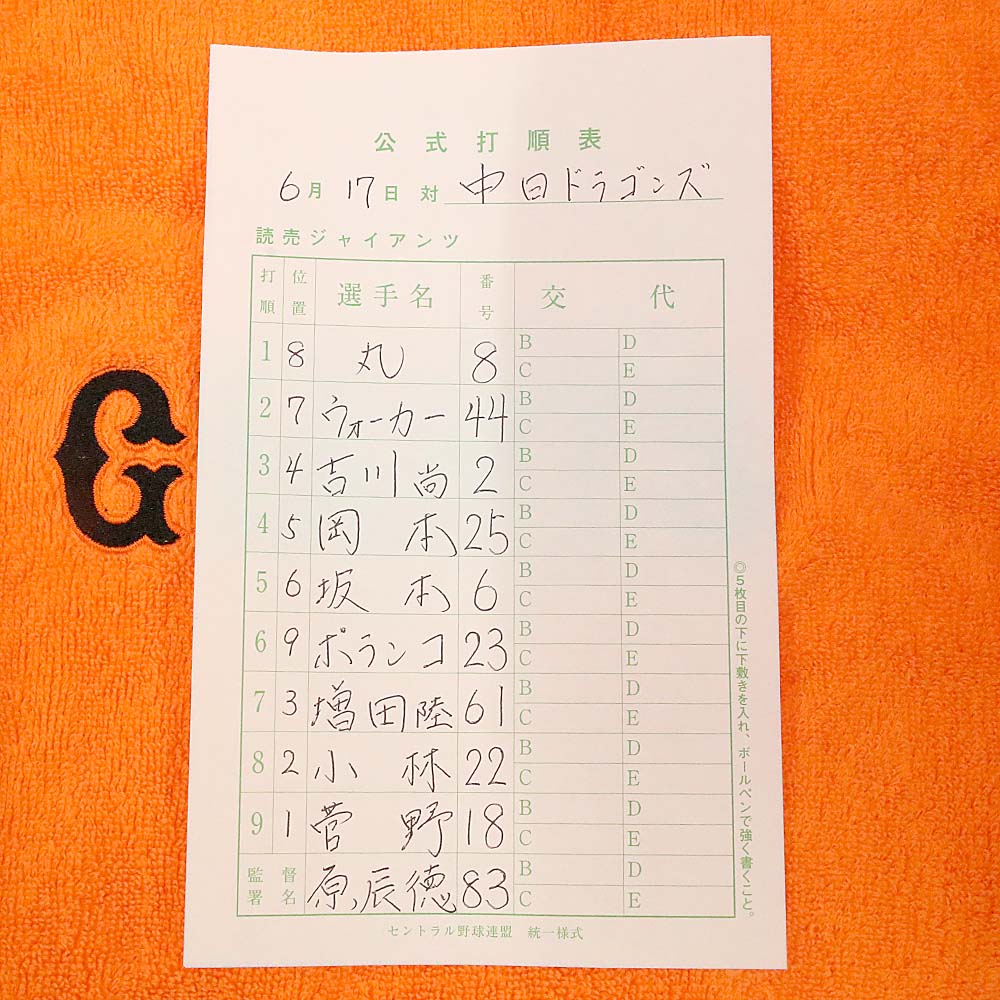 公式打順表
6月17日 対 中日ドラゴンズ
読売ジャイアンツ
打順 位置 選手名 番号 交代
1 8 丸 8 B D
C E
2 7 ウォーカー 44 B D
C E
3 4 吉川尚 2 B D
C E
4 5 岡本 25 B D
C E
5 6 坂本 6 B D
C E
6 9 ポランコ 23 B D
C E
7 3 増田陸 61 B D
C E
8 2 小林 22 B D
C E
9 1 菅野 18 B D
C E
監督署名 原辰徳 83 B D
C E
セントラル野球連盟 統一様式
◎5枚目の下に下敷きを入れ、ボールペンで強く書くこと。
G